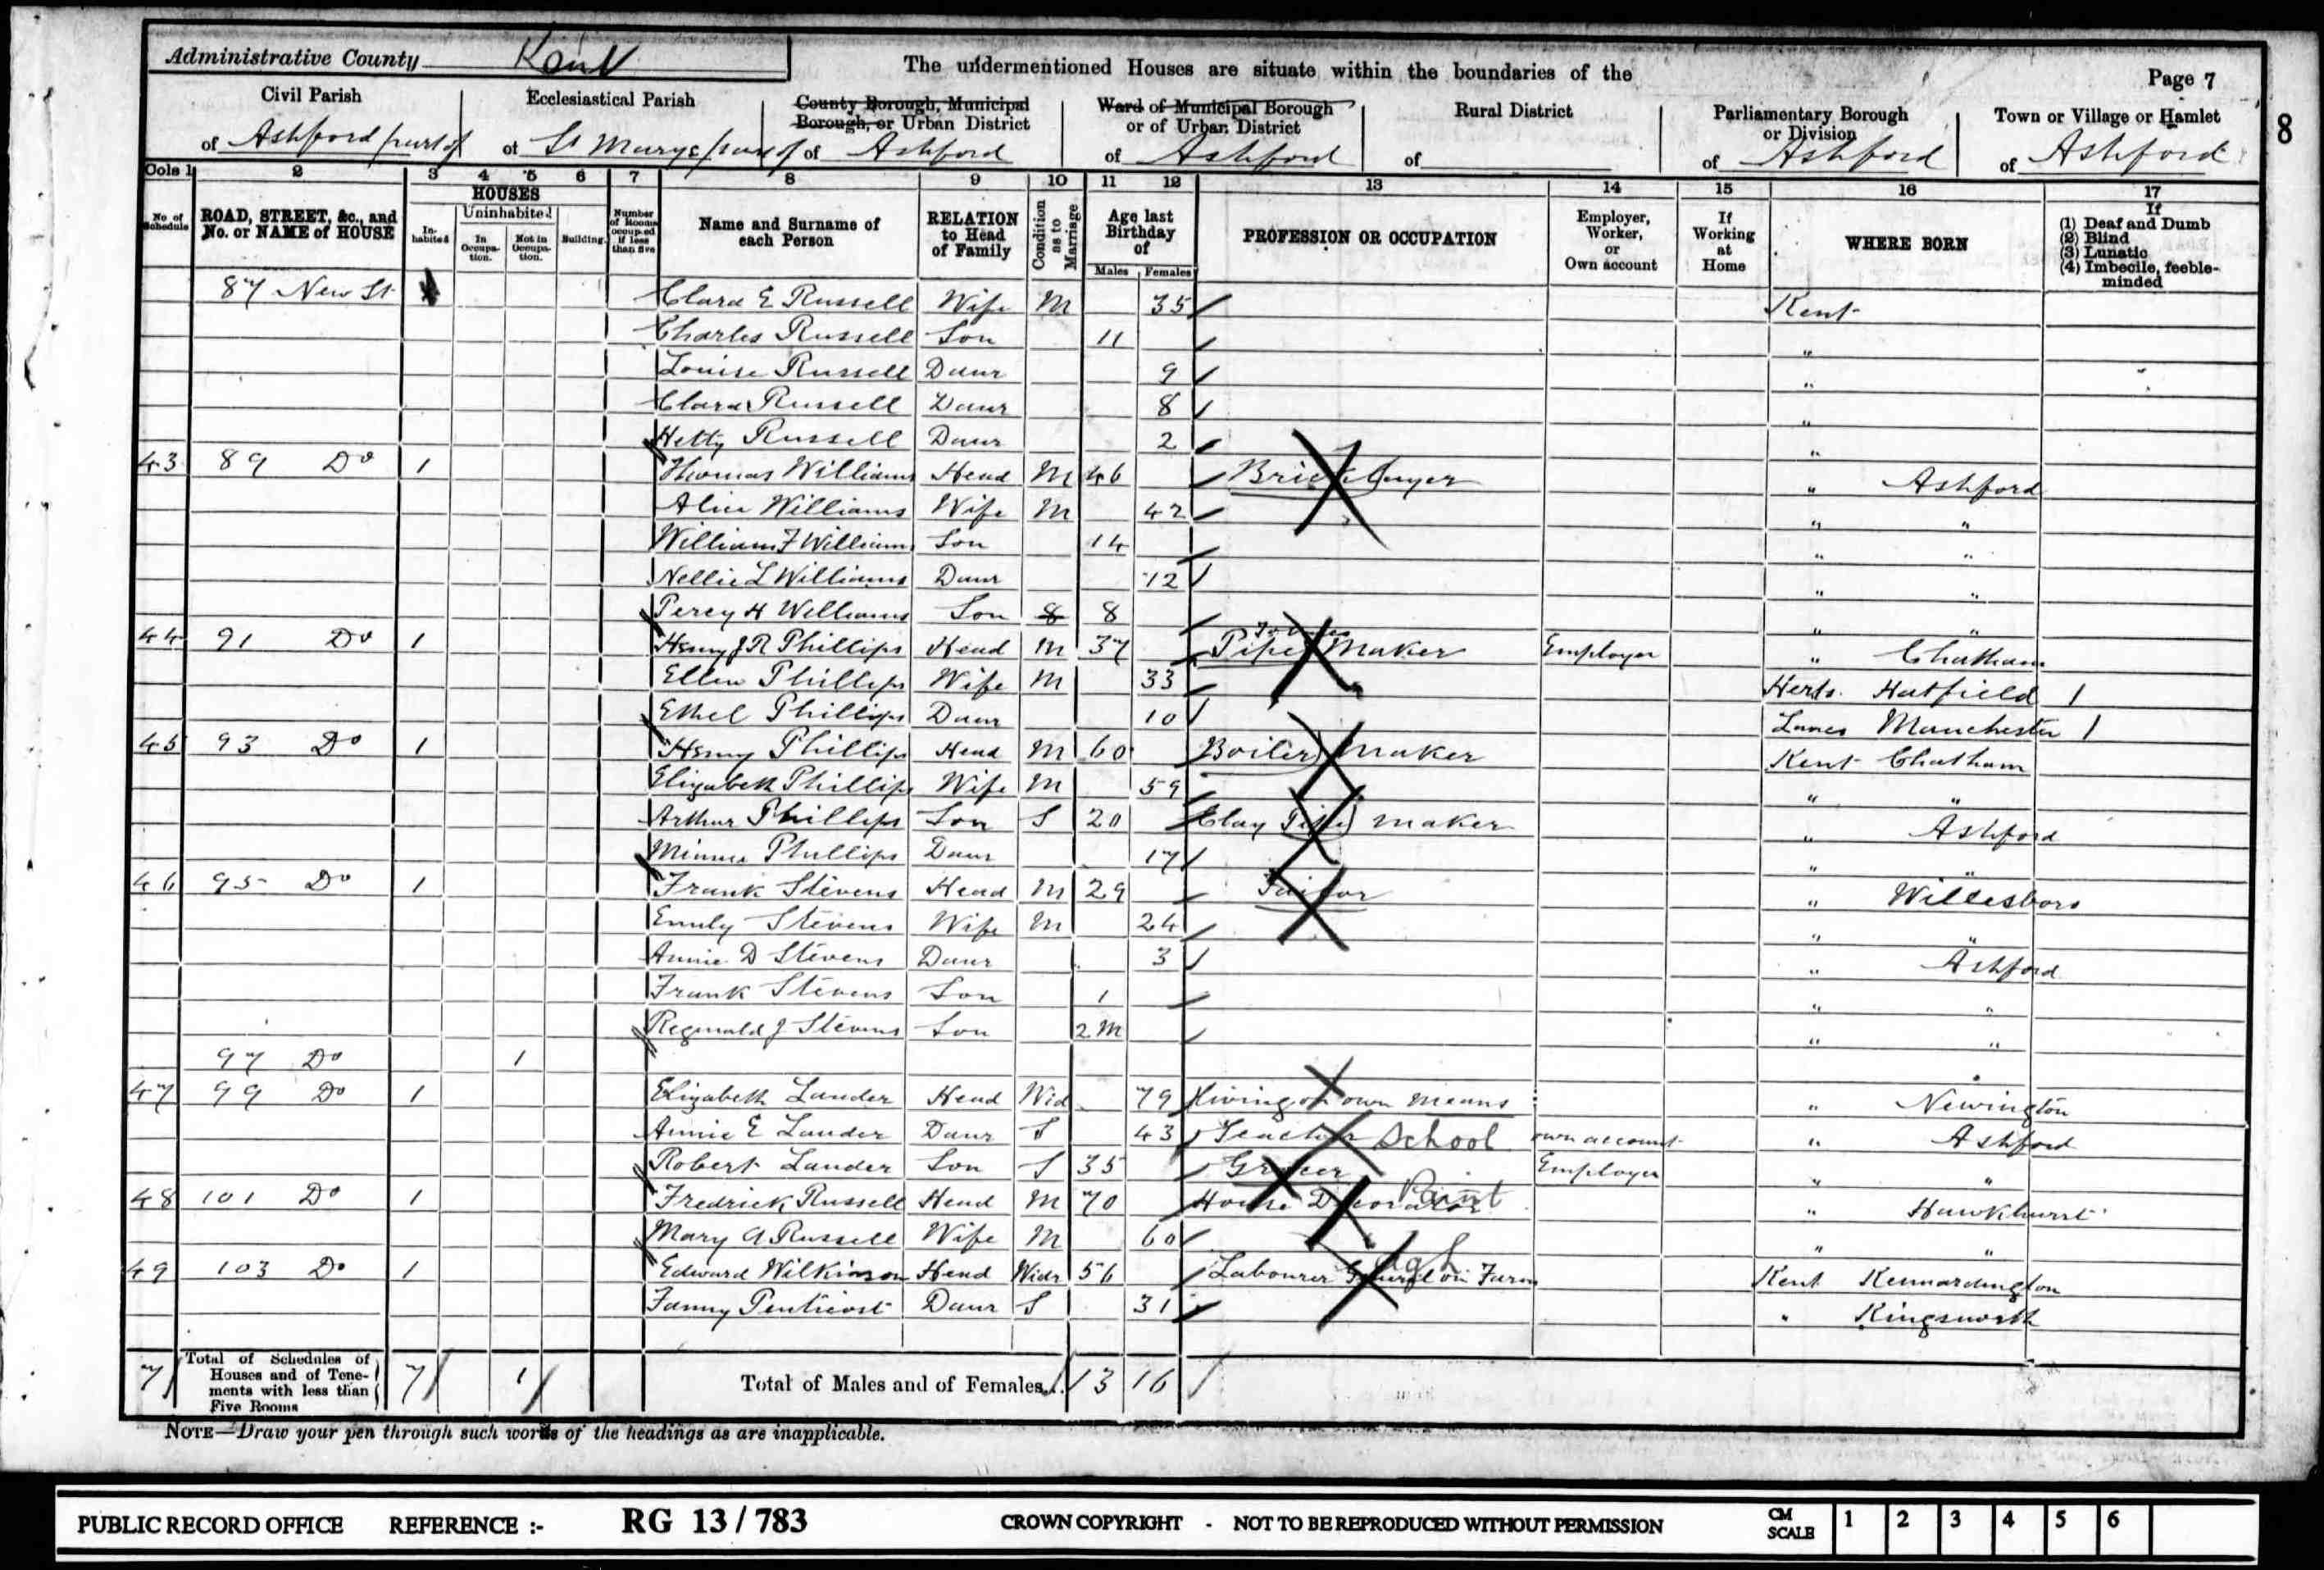 Administrative County Kent
The undermentioned Houses are situate within the boundaries of the
Page 7
8
Civil Parish
of Ashford part of
Ecclesiastical Parish
of St Marys part of
County Borough, Municipal Borough, or Urban District
of Ashford
Ward of Municipal Borough or of Urban District
of Ashford
Rural District
of
Parliamentary Borough or Division
of Ashford
Town or Village or Hamlet
of Ashford
Cols 1 2 3 4 5 6 7 8 9 10 11 12 13 14 15 16 17
No of Schedule
ROAD, STREET, &c., and No. or NAME of HOUSE
HOUSES
Inhabited
Uninhabited
In Occupation.
Not in Occupation.
Building.
Number of Rooms occupied if less than five
Name and Surname of each Person
RELATION to Head of Family
Condition as to Marriage
Age last Birthday of
Males Females
PROFESSION OR OCCUPATION
Employer, Worker, or Own account
If Working at Home
WHERE BORN
If
(1) Deaf and Dumb
(2) Blind
(3) Lunatic
(4) Imbecile, feeble-minded
87 New St Clara E Russell Wife M 35 Kent
Charles Russell Son 11 "
Louise Russell Daur 9 "
Clara Russell Daur 8 "
Hetty Russell Daur 2 "
43 89 Do 1 Thomas Williams Head M 46 Bricklayer " Ashford
Alice Williams Wife M 42 " "
William F Williams Son 14 " "
Nellie L Williams Daur 12 " "
Percy H Williams Son 8 8 " "
44 91 Do 1 Henry J R Phillips Head M 37 Pipe Maker Employer " Chatham
Ellen Phillips Wife M 33 Herts. Hatfield 1
Ethel Phillips Daur 10 Lancs Manchester 1
45 93 Do 1 Henry Phillips Head M 60 Boiler Maker Kent Chatham
Elizabeth Phillips Wife M 59 " "
Arthur Phillips Son S 20 Clay Pipe maker " Ashford
Minnie Phillips Daur 17 " "
46 95 Do 1 Frank Stevens Head M 29 Tailor " Willesboro
Emily Stevens Wife M 24 " "
Annie D Stevens Daur 3 " Ashford
Frank Stevens Son 1 " "
Reginald J Stevens Son 2 M " "
97 Do 1
47 99 Do 1 Elizabeth Lander Head Wid 79 Living on own means " Newington
Annie E Lander Daur S 43 Teacher School own account " Ashford
Robert Lander Son S 35 Grocer Employer " "
48 101 Do 1 Fredrick Russell Head M 70 House Decorator Paint " Hawkhurst
Mary A Russell Wife M 60 " "
49 103 Do 1 Edward Wilkinson Head Widr 56 Labourer General on Farm Agl Kent Kennardington
Fanny Penticost Daur S 31 " Kingsnorth
7 Total of Schedules of Houses and of Tenements with less than Five Rooms 7 1 Total of Males and of Females... 13 16
NOTE—Draw your pen through such words of the headings as are inapplicable.
PUBLIC RECORD OFFICE REFERENCE :- RG 13 / 783 CROWN COPYRIGHT - NOT TO BE REPRODUCED WITHOUT PERMISSION CM SCALE 1 2 3 4 5 6